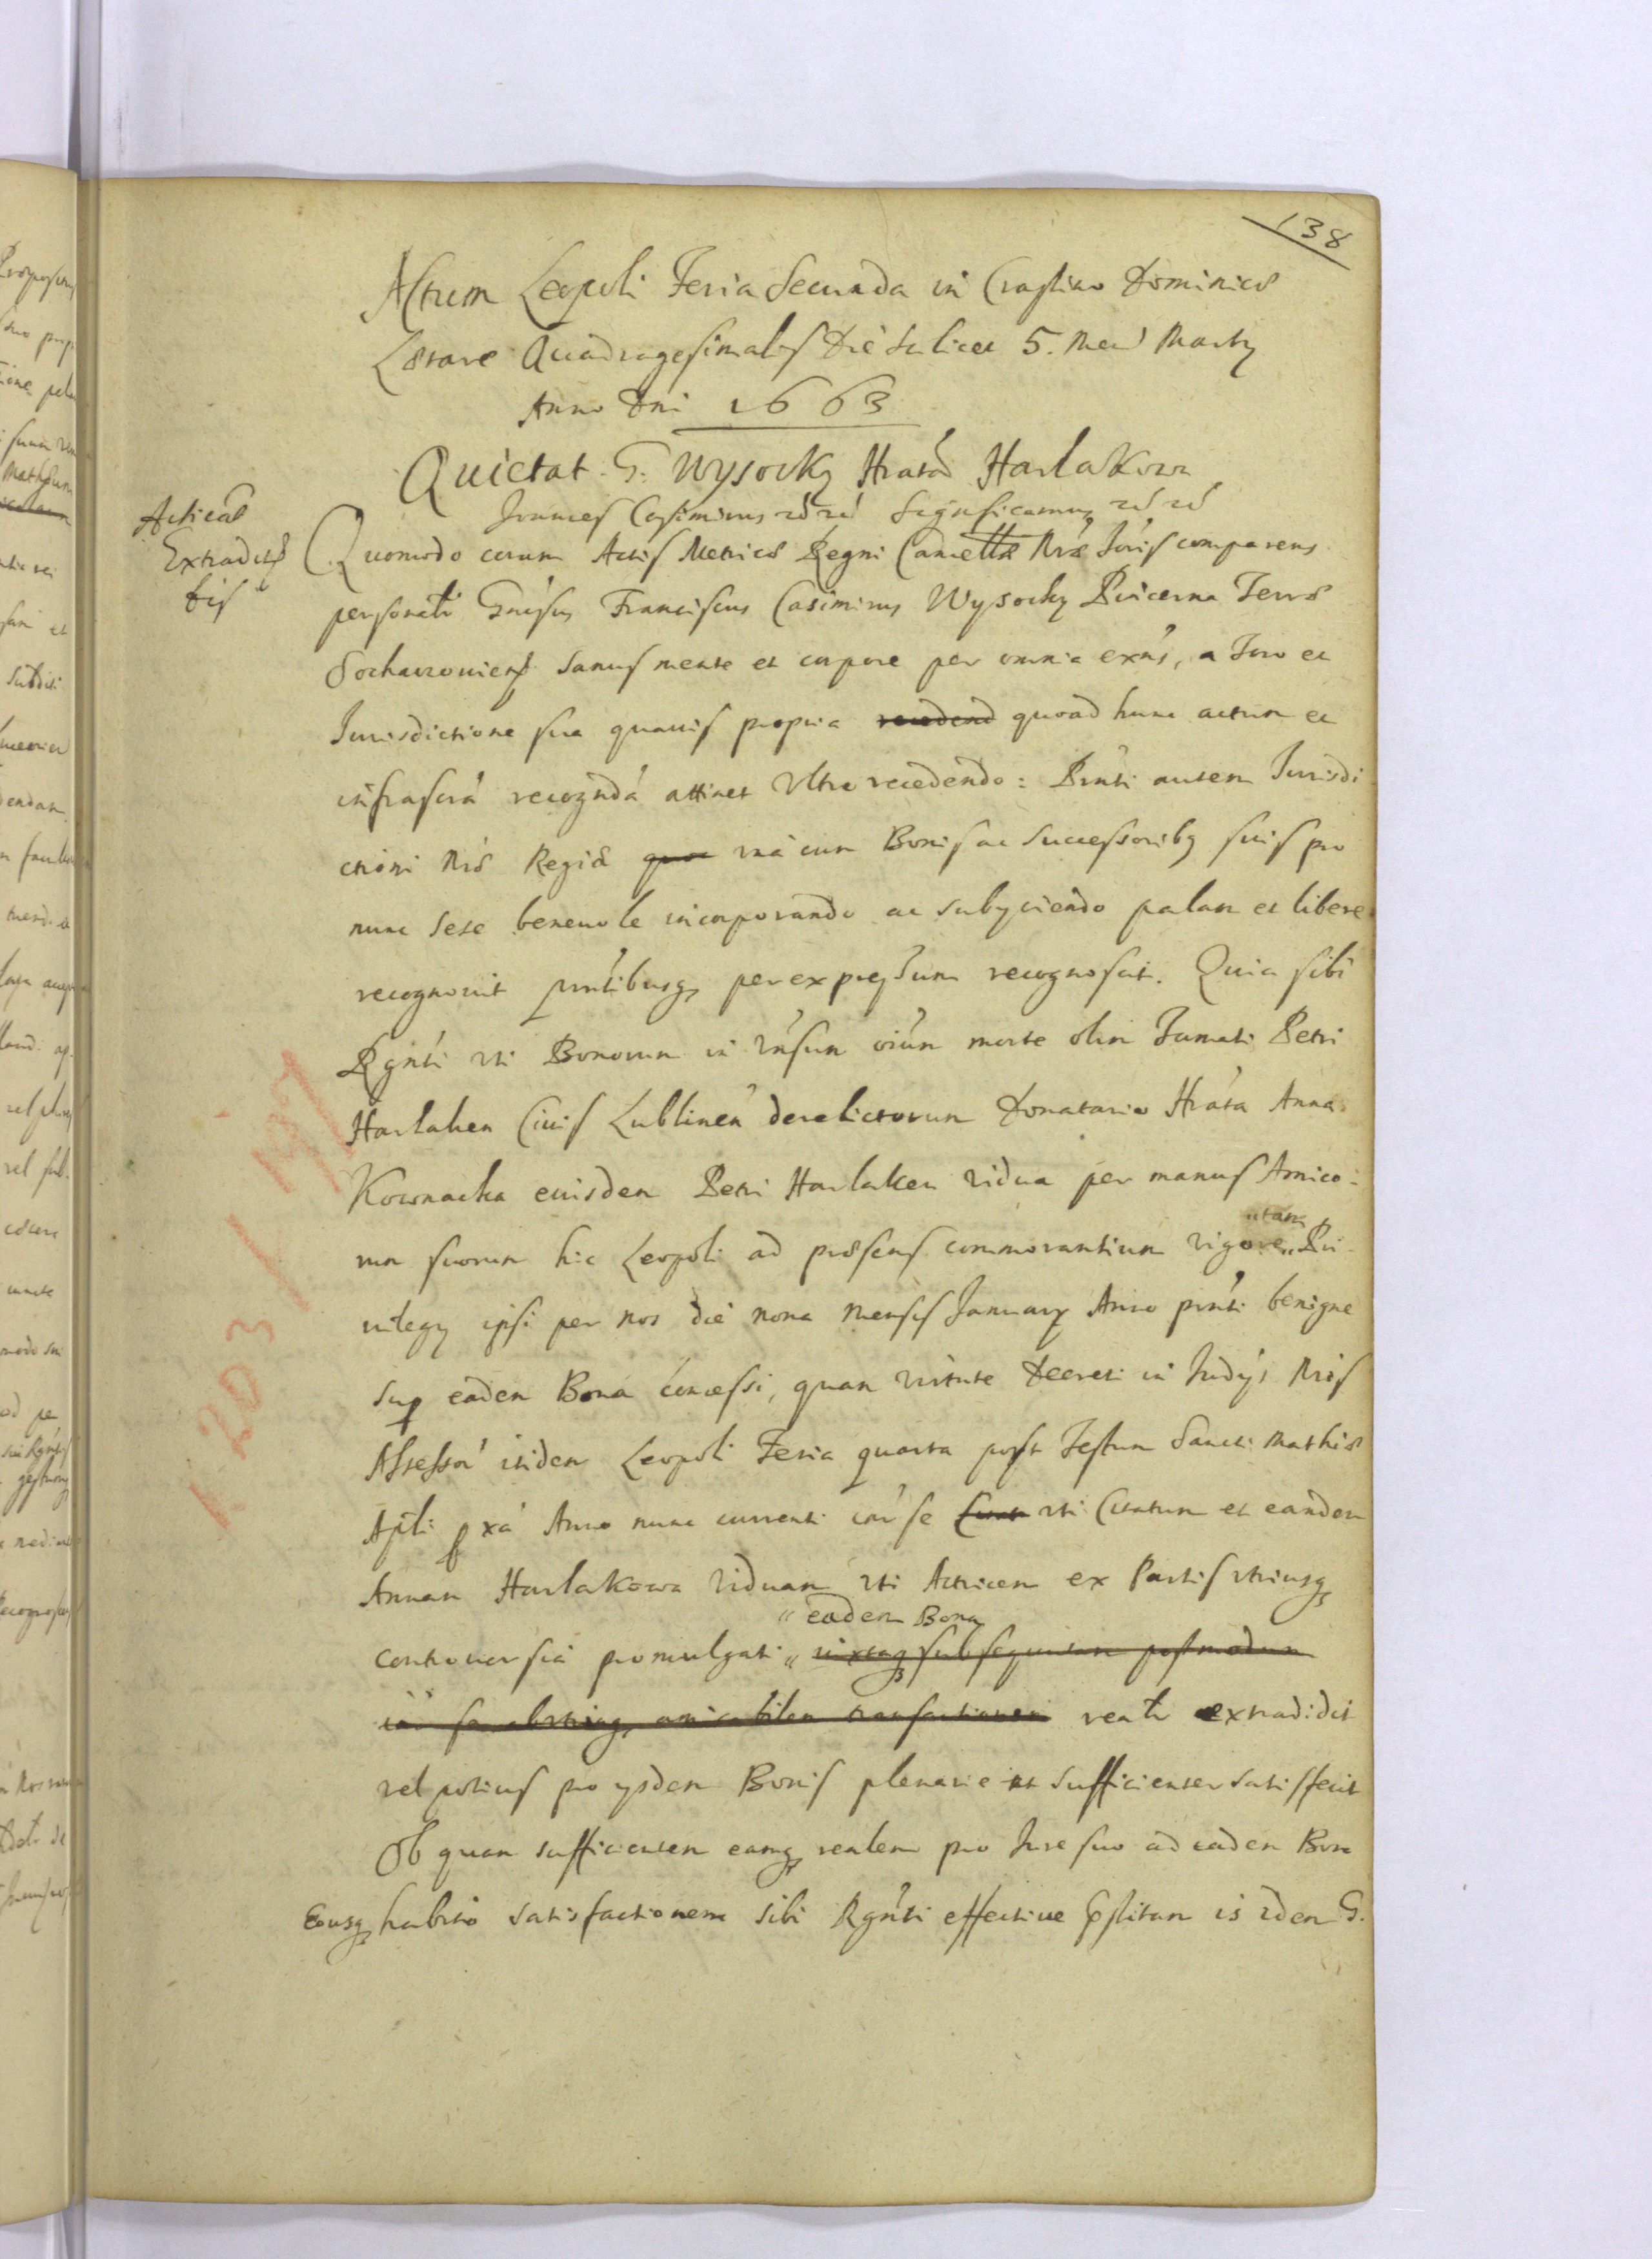 138
Actum Leopoli Feria Secunda in Crastino Dominicæ
Lætare Quadragesimalis Die scilicet 5. Men Martÿ
Anno Dni 1663
Quietat G. Wysocky Hratæ Harlakowa
Joannes Casimirus Significamus
Acticat
Extradit
bis
Quomodo coram Actis Metricæ Regni Cancellæ Nræ Joris comparens
personalr Gnrsus Franciscus Casimirus Wysocky Pincerna Terræ
Sochacouiens Sanus mente et corpore per omnia exns, a Foro et
Jurisdictione sua quauis propria recedend quoad hunc actum et
infrascra recognda attinet Ultro recedendo: Prnti autem Jurisdi
ctioni Nræ Regiæ quoe una cum Bonis ac Successoribq suis pro
nunc Sese beneuole incorporando ac subÿciendo palam et libere
recognouit prntibusq per expressum recognoscit. Quia sibi
Rgnti uti Bonorum in Vnsum oium morte olim Famati Petri
Harlaken Ciuis Lublinen derelictorum Donatario Hrata Anna
Kownacka eiusdem Petri Harlaken vidua per manus Amico:
rum suorum hic Leopoli ad præsens commorantium vigore " Pri
" tam
uilegÿ ipsi per nos die nona mensis Januarÿ Anno prnti benigne
sup eadem Bona concessi, quam virtute Decreti in Judÿs Nris
Assessor itidem Leopoli Feria quarta post Festum Sancti Mathiæ
Apli pxa Anno nunc currenti inr se uti Citatum et eandem
Annam Harlakowa Viduam uti Actricem ex Partis utriusq
" eadem Bona
controuersia promulgati " iuxtaq subsequutam postmodum
inr se abutrinq amicabilem transactionem realr extradidit
vel potius pro ÿsdem Bonis plenarie et Sufficienter Satisfecit
Ob quam sufficientem eamq realem pro Jure suo ad eadem Bona
Eousq habito Satisfactionem Sibi Rgnti effectiue præstitam is idem G.
1 203 / 137